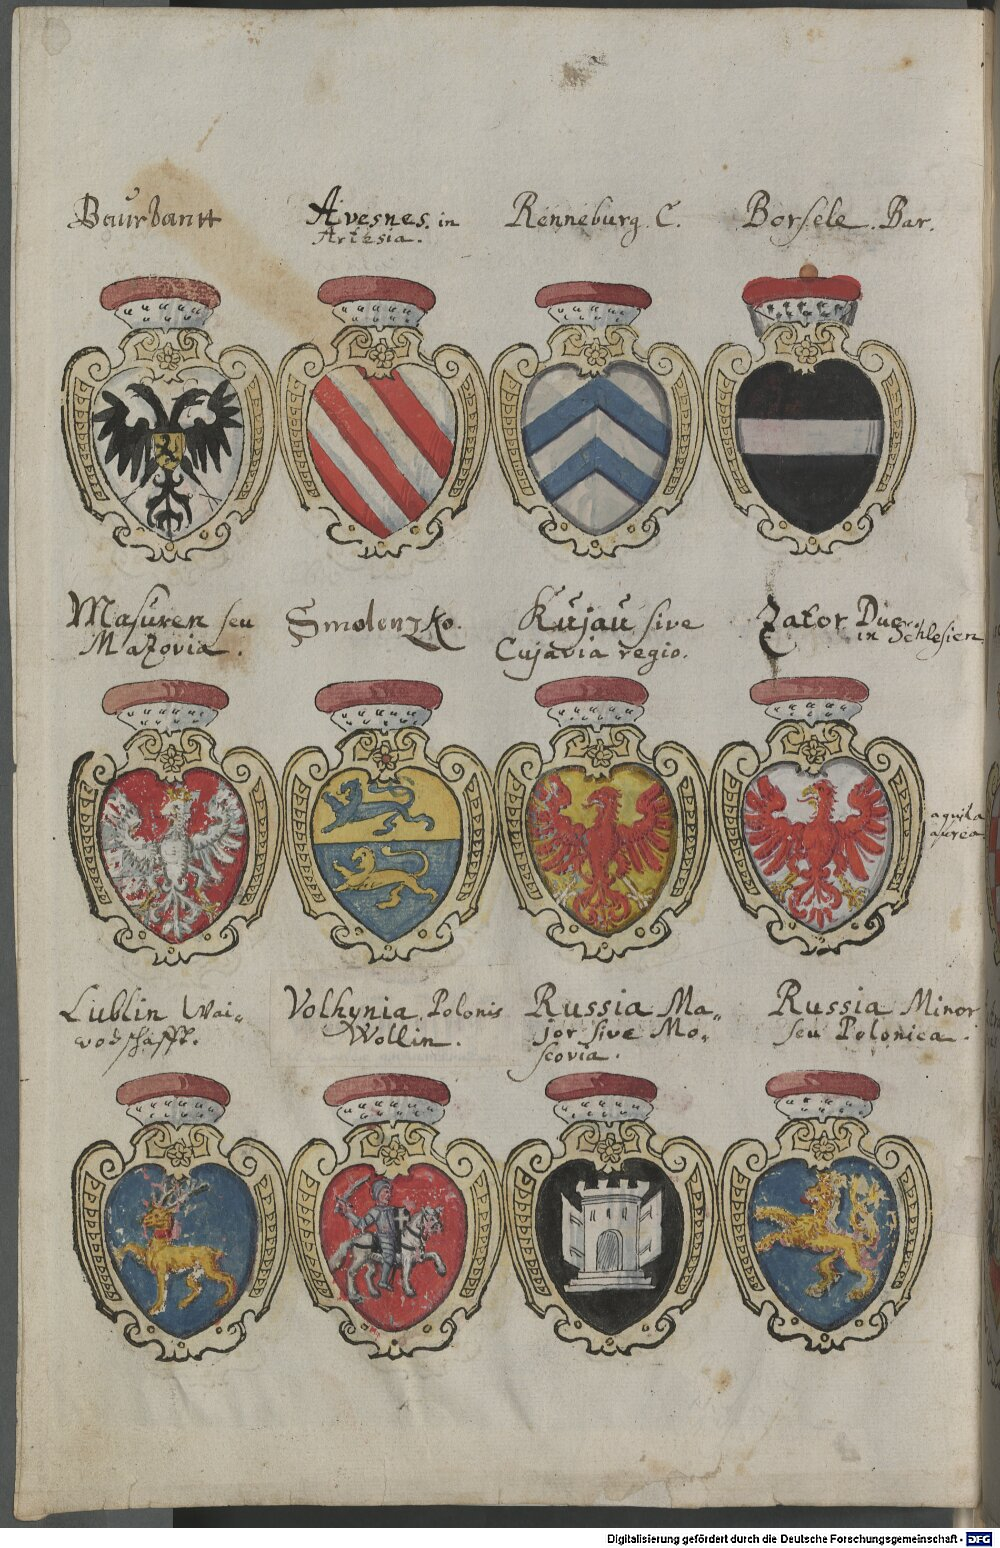 Baurdantt
Avesnes. in
Artesia.
Renneburg. C.
Borsele. Bar.
Masuren seu
Mazovia.
Smolenzko.
Kujau sive
Cujavia regio.
Zator Duc.
in Schlesien
aquila
aurea
Lublin Wai-
wodschafft.
Volhynia, Polonis
Wollin.
Russia Ma-
jor sive Mo-
scovia.
Russia Minor
seu Polonica.
Digitalisierung gefördert durch die Deutsche Forschungsgemeinschaft - DFG